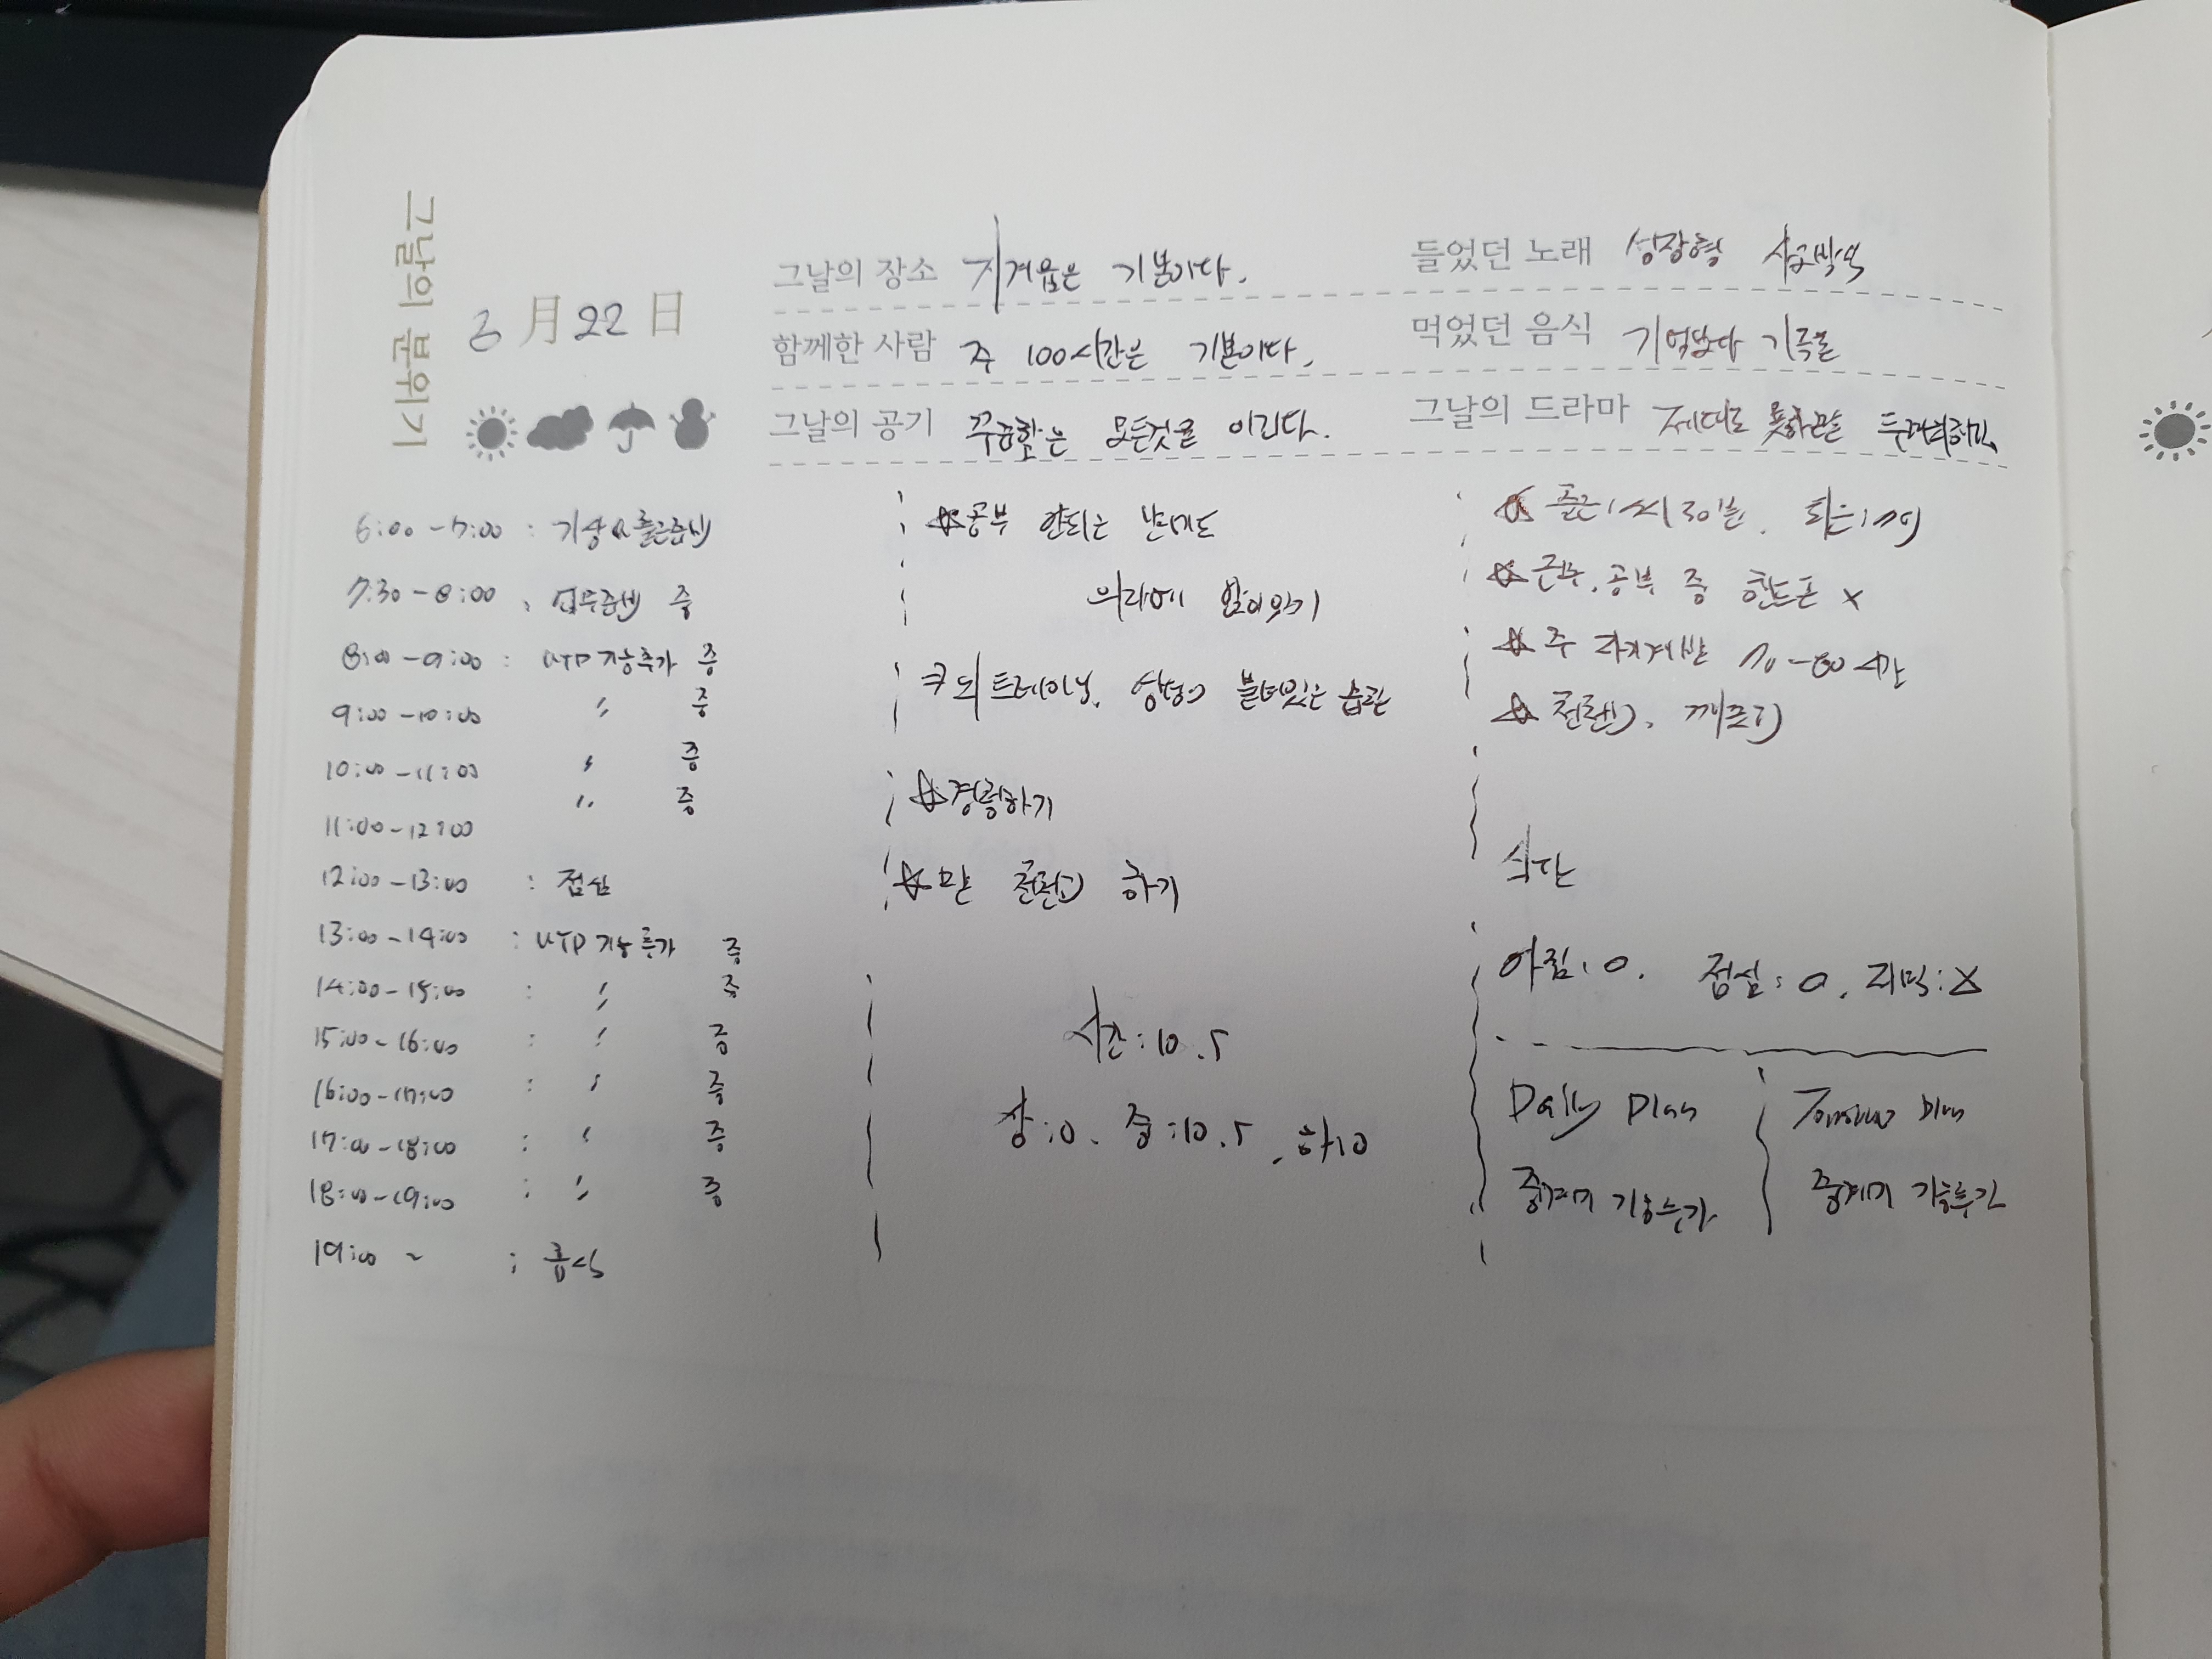 그날의 분위기
6月 22日
그날의 장소 지겨움은 기본이다.
들었던 노래 성장형 사고방식
함께한 사람 주 100시간은 기본이다.
먹었던 음식 기억보다 기록을
그날의 공기 꾸준함은 모든것을 이긴다.
그날의 드라마 제대로
6:00 - 7:00 : 기상 & 출근준비
7:30 - 8:00 : 업무준비 중
8:00 - 9:00 : UTP 기능추가 중
9:00 - 10:00 〃 중
10:00 - 11:00 〃 중
11:00 - 12:00 〃 중
12:00 - 13:00 : 점심
13:00 - 14:00 : UTP 기능추가 중
14:00 - 15:00 : 〃 중
15:00 - 16:00 : 〃 중
16:00 - 17:00 : 〃 중
17:00 - 18:00 : 〃 중
18:00 - 19:00 : 〃 중
19:00 ~ : 휴식
☆공부 안되는 날에도
의자에 앉아있기
트레이닝, 붙어있는 습관
☆경청하기
☆말 하기
시간 : 10.5
상 : 0. 중 : 10.5, 하 : 0
30분,
☆ 근무, 공부 중 핸드폰 x
☆ 주 자기계발 70-80시간
☆
식단
아침 : 0. 점심 : 0. 저녁 : X
Daily Plan
중계기 기능추가
Tomorrow plan
중계기 기능추가